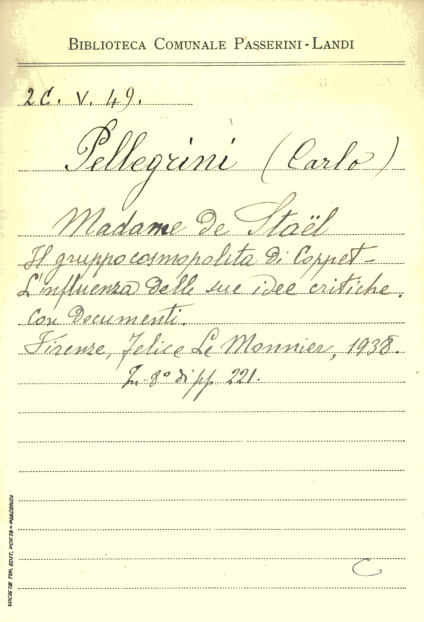 BIBLIOTECA COMUNALE PASSERINI-LANDI
2C. V. 49.
Pellegrini (Carlo)
Madame de Staël
Il gruppo cosmopolita di Coppet -
L'influenza delle sue idee critiche.
Con documenti.
Firenze, Felice Le Monnier, 1938.
In-8° di pp. 221.
C
SOCIETÀ TIP. EDIT. PORTA - PIACENZA